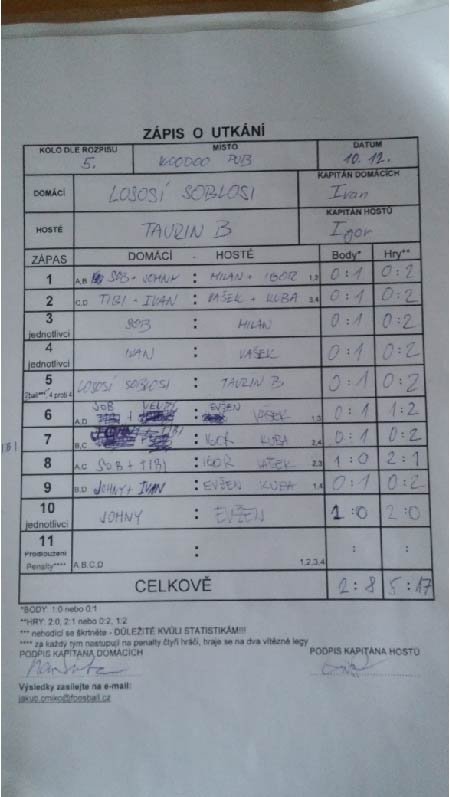 ZÁPIS O UTKÁNÍ
KOLO DLE ROZPISU MÍSTO DATUM
5. VOODOO PUB 10.12.
DOMÁCÍ LOSOSÍ SOBLOSI KAPITÁN DOMÁCÍCH Ivan
HOSTÉ TAURIN B KAPITÁN HOSTŮ Igor
ZÁPAS DOMÁCÍ - HOSTÉ Body* Hry**
1 A,B SOB + JOHNY : MILAN + IGOR 1,2 0:1 0:2
2 C,D TIBI - IVAN : VAŠEK + KUBA 3,4 0:1 0:2
3 jednotlivci SOB : MILAN 0:1 0:2
4 jednotlivci IVAN : VAŠEK 0:1 0:2
5 2ball***, 4 proti 4 LOSOSÍ SOBLOSI : TAURIN B 0:1 0:2
6 A,D SOB + : EVŽEN VAŠEK 1,3 0:1 1:2
7 B,C : IGOR KUBA 2,4 0:1 0:2
8 A,C SOB + TIBI : IGOR VAŠEK 2,3 1:0 2:1
9 B,D JOHNY + IVAN : EVŽEN KUBA 1,4 0:1 0:2
10 jednotlivci JOHNY : EVŽEN 1:0 2:0
11 Prodloužení Penalty**** A,B,C,D : 1,2,3,4 : :
CELKOVĚ 2:8 5:17
*BODY: 1:0 nebo 0:1
**HRY: 2:0, 2:1 nebo 0:2, 1:2
*** nehodící se škrtněte - DŮLEŽITÉ KVŮLI STATISTIKÁM!!!
**** za každý tým nastupují na penalty čtyři hráči, hraje se na dva vítězné legy
PODPIS KAPITÁNA DOMÁCÍCH PODPIS KAPITÁNA HOSTŮ
Výsledky zasílejte na e-mail:
jakub.cmiko@foosball.cz